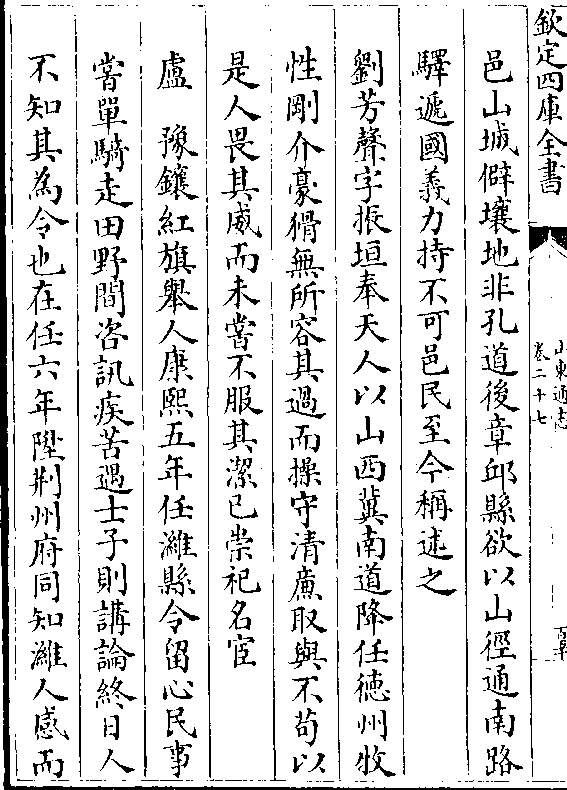 欽定四庫全書
山東通志
卷二十七
邑山城僻壤地非孔道後章邱縣欲以山徑通南路
驛遞國義力持不可邑民至今稱述之
劉芳聲字振垣奉天人以山西冀南道降任德州牧
性剛介豪猾無所容其過而操守清廉取與不苟以
是人畏其威而未嘗不服其潔已崇祀名宦
盧　豫鑲紅旗舉人康熙五年任濰縣令留心民事
嘗單騎走田野間咨訊疾苦遇士子則講論終日人
不知其為令也在任六年陞荆州府同知濰人感而